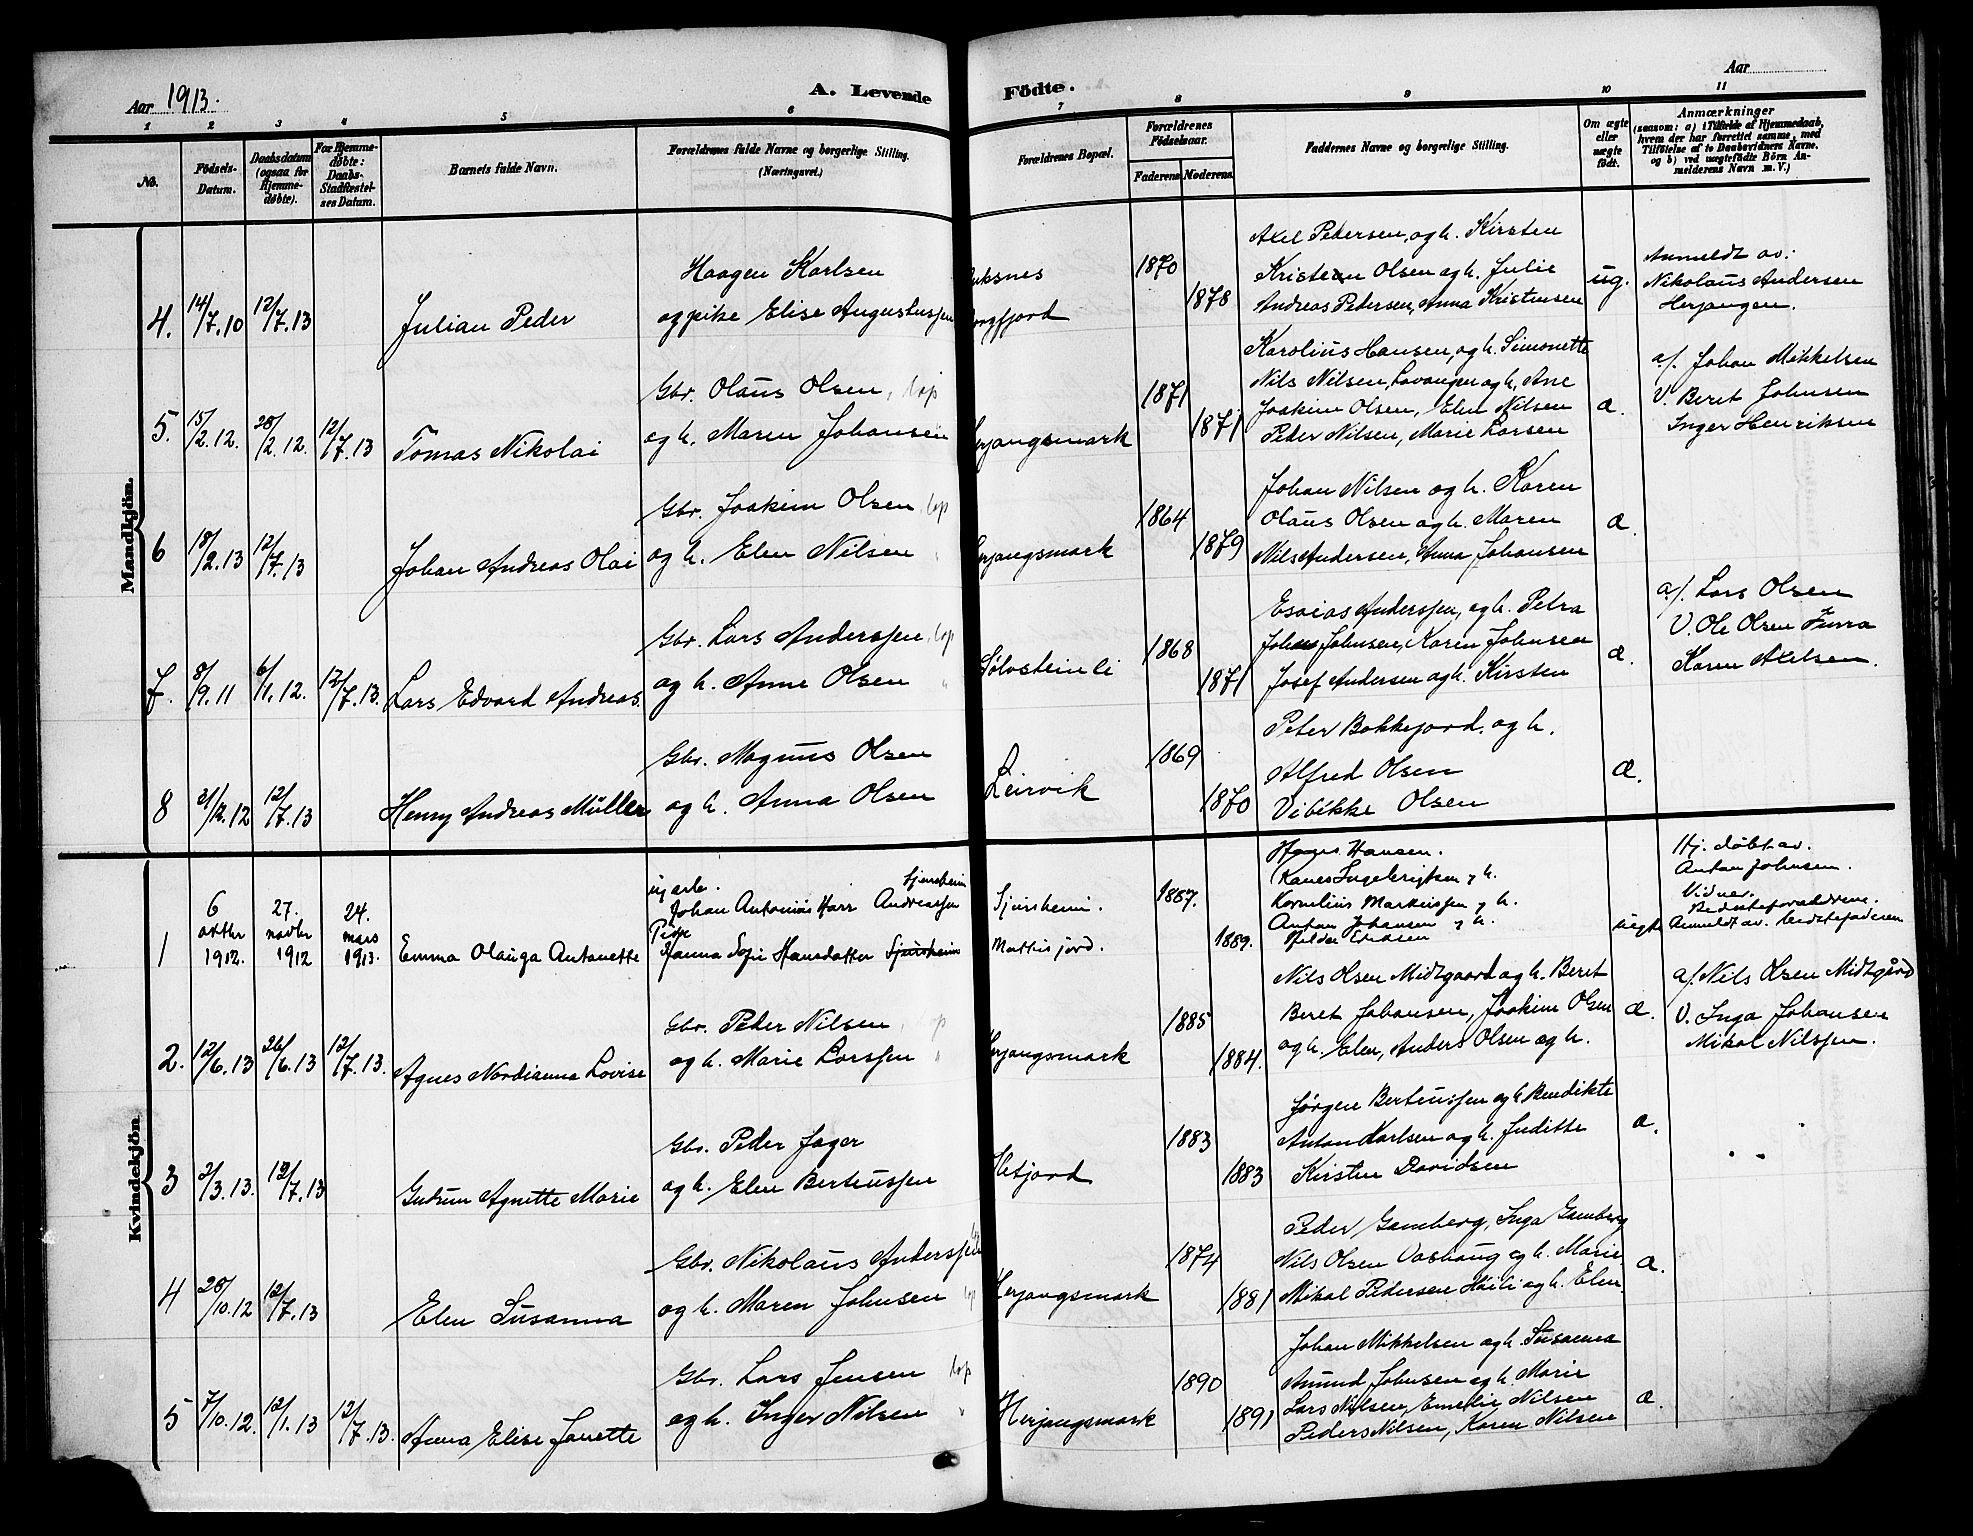 Aar 1913.
A. Levende
Födte.
Aar
1 2 3 4 5 6 7 8 9 10 11
No.
Fødsels-Datum.
Daabsdatum (ogsaa for Hjemme-døbte).
For Hjemme-døbte: Daabs-Stadfæstel-ses Datum.
Barnets fulde Navn.
Forældrenes fulde Navne og borgerlige Stilling. (Næringsvei.)
Forældrenes Bopæl.
Forældrenes Fødselsaar.
Faderens. Moderens.
Faddernes Navne og borgerlige Stilling.
Om ægte eller uægte født.
Anmærkninger
(saasom: a) i Tilfælde af Hjemmedaab, hvem der har forrettet samme, med Tilföielse af to Daabsvidners Navne. og b) ved uægtefödte Börn An-melderens Navn m. V.)
Mandkjön.
4. 14/7.10 12/7.13 Julian Peder
Haagen Karlsen
og pike Elise Augustussen
1870
1878
Axel Pedersen, og h. Kirsten
Kristen Olsen og h. Julie
Andreas Pedersen, Anna Kristensen
ug.
Anmeldt av:
Nikolaus Andersen
Herjangen.
5. 15/2.12. 28/2.12. 12/7.13 Tomas Nikolai
Gbr. Olaus Olsen, lap
og h. Maren Johansen
erjangsmark
1871
1871
Karolius Hansen, og h. Simonette
Nils Nilsen, Lavangen og h. Ane
Joakim Olsen, Elen Nilsen
Peder Nilsen, Marie Larsen
æ.
a/. Johan Mikkelsen
V. Beret Johnsen
Inger Henriksen
6 18/2.13 12/7.13 Johan Andreas Olai
Gbr. Joakim Olsen, lap
og h. Elen Nilsen "
erjangsmark
1864
1879
Johan Nilsen og h. Karen
Olaus Olsen og h. Maren
Nils Andersen, Anna Johansen
æ.
7. 8/9.11 6/1.12. 12/7.13. Lars Edvard Andreas.
Gbr. Lars Anderssen, lap
og h. Anne Olsen "
Sølvsteinli
1868
1871
Esaias Anderssen, og h. Petra
Johan Johnsen, Karen Johnsen
Josef Andersen og h. Kirsten
æ.
a/. Lars Olsen
V. Ole Olsen Furra
Karen Axelsen.
8 12/7.13 Henry Andreas Müller
Gbr. Magnus Olsen
og h. Anna Olsen
Leirvik
1869
1870
Peter Bokkefjord. og h.
Alfred Olsen
Vibekke Olsen
æ.
Kvindekjön.
1 6 oktbr 1912. 27. novbr 1912 24. mars 1913. Emma Olauga Antonette
Johan Antonius Harr Andreassen
Pike
Hanna Sofie Hansdatter
1887.
1889.
Hansen.
Kornelius Markussen og h.
Anton Johansen og h.
uegte
Hj. døbt av.
Anton Johnsen.
Vidner.
Bedsteforældrene.
Anmeldt av. bedstefaderen
2. 12/6.13 26/6.13 12/7.13. Agnes Nordianna Lovise
Gbr. Peder Nilsen, lap
og h. Marie Larssen "
erjangsmark
1885
1884.
Nils Olsen Midtgaard og h. Beret
Beret Johansen, Joakim Olsen
og h. Elen, Anders Olsen og h.
æ.
a/. Nils Olsen Midtgård
V. Inga Johansen
Mikal Nilssen.
3 2/3.13. 12/7.13 Gudrun Agnette Marie
Gbr. Peder Jager
og h. Elen Berteussen
1883
1883
Jørgen Berteussen og h. Bendikte
Anton Karlsen og h. Juditte
Kirsten Davidsen
æ.
4 28/10.12 12/7.13 Elen Susanna
Gbr. Nikolaus Anderssen
og h. Maren Johnsen lap
Herjangsmark
1874
1881
Peder Gamberg, Inga Gamberg
Nils Olsen Vashaug og h. Marie
Mikal Pedersen Haili og h. Elen.
æ.
5 7/10.12. 12/1.13 12/7.13. Anna Elise Janette
Gbr. Lars Jensen lap
og h. Inger Nilsen "
Herjangsmark
1890
1891
Johan Mikkelsen og h. Susanna
Amund Johnsen og h. Marie
Lars Nilsen, Emelie Nilsen
Peder Nilsen, Karen Nilsen
æ.